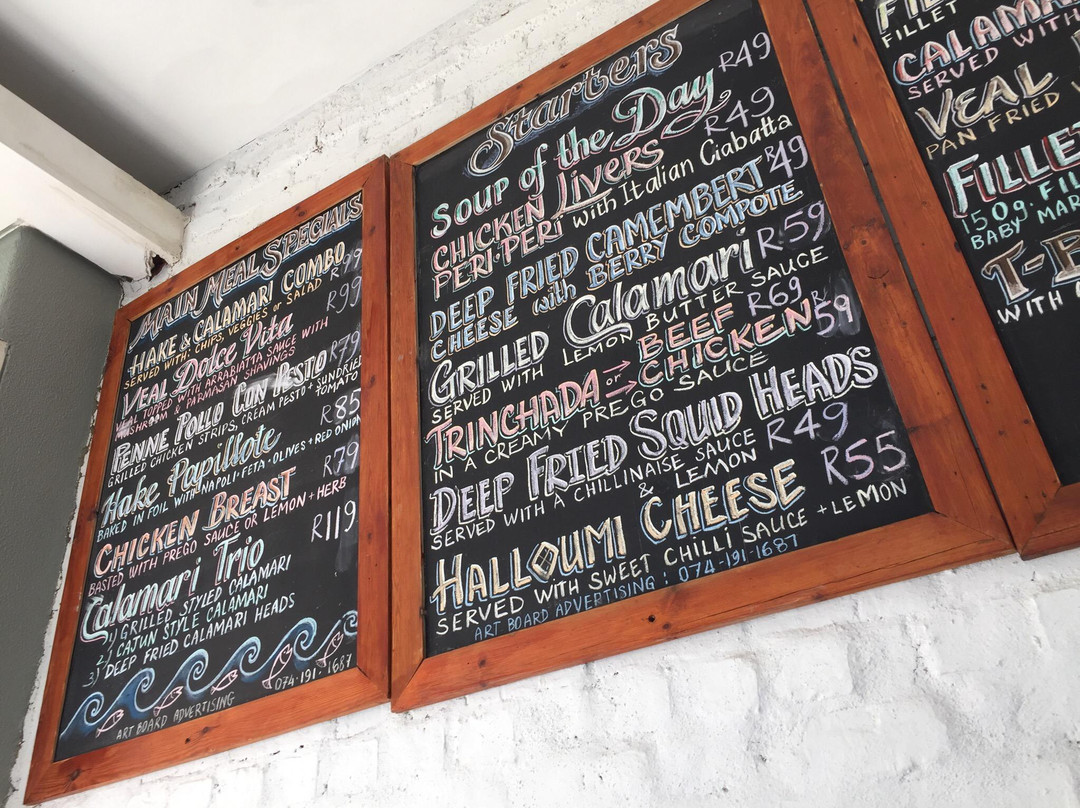 MAIN MEAL SPECIALS
HAKE & CALAMARI COMBO R79
SERVED WITH: CHIPS, VEGGIES or SALAD
VEAL Dolce Vita R99
VEAL TOPPED WITH ARRABIATTA SAUCE WITH
MUSHROOM & PARMASAN SHAVINGS
PENNE POLLO CON PESTO R79
GRILLED CHICKEN STRIPS, CREAM PESTO + SUNDRIED
TOMATO
Hake Papillote R85
BAKED IN FOIL WITH NAPOLI + FETA + OLIVES + RED ONION
CHICKEN BREAST R79
BASTED WITH PREGO SAUCE OR LEMON + HERB
Calamari Trio R119
1) GRILLED STYLED CALAMARI
2) CAJUN STYLE CALAMARI
3) DEEP FRIED CALAMARI HEADS
ART BOARD ADVERTISING 074·191·1687
Starters
Soup of the Day R49
CHICKEN Livers R49
PERI-PERI with Italian Ciabatta
DEEP FRIED CAMEMBERT R49
CHEESE with BERRY COMPOTE
GRILLED Calamari R59
SERVED WITH LEMON BUTTER SAUCE
TRINCHADA or BEEF R69
CHICKEN R59
IN A CREAMY PREGO SAUCE
DEEP FRIED SQUID HEADS
SERVED WITH A CHILLINAISE SAUCE R49
& LEMON
HALLOUMI CHEESE R55
SERVED WITH SWEET CHILLI SAUCE + LEMON
ART BOARD ADVERTISING : 074-191-1687
FILLET
CALAMAR
SERVED WITH
VEAL
PAN FRIED
FILLE
150g. FIL
BABY MAR
T-B
WITH